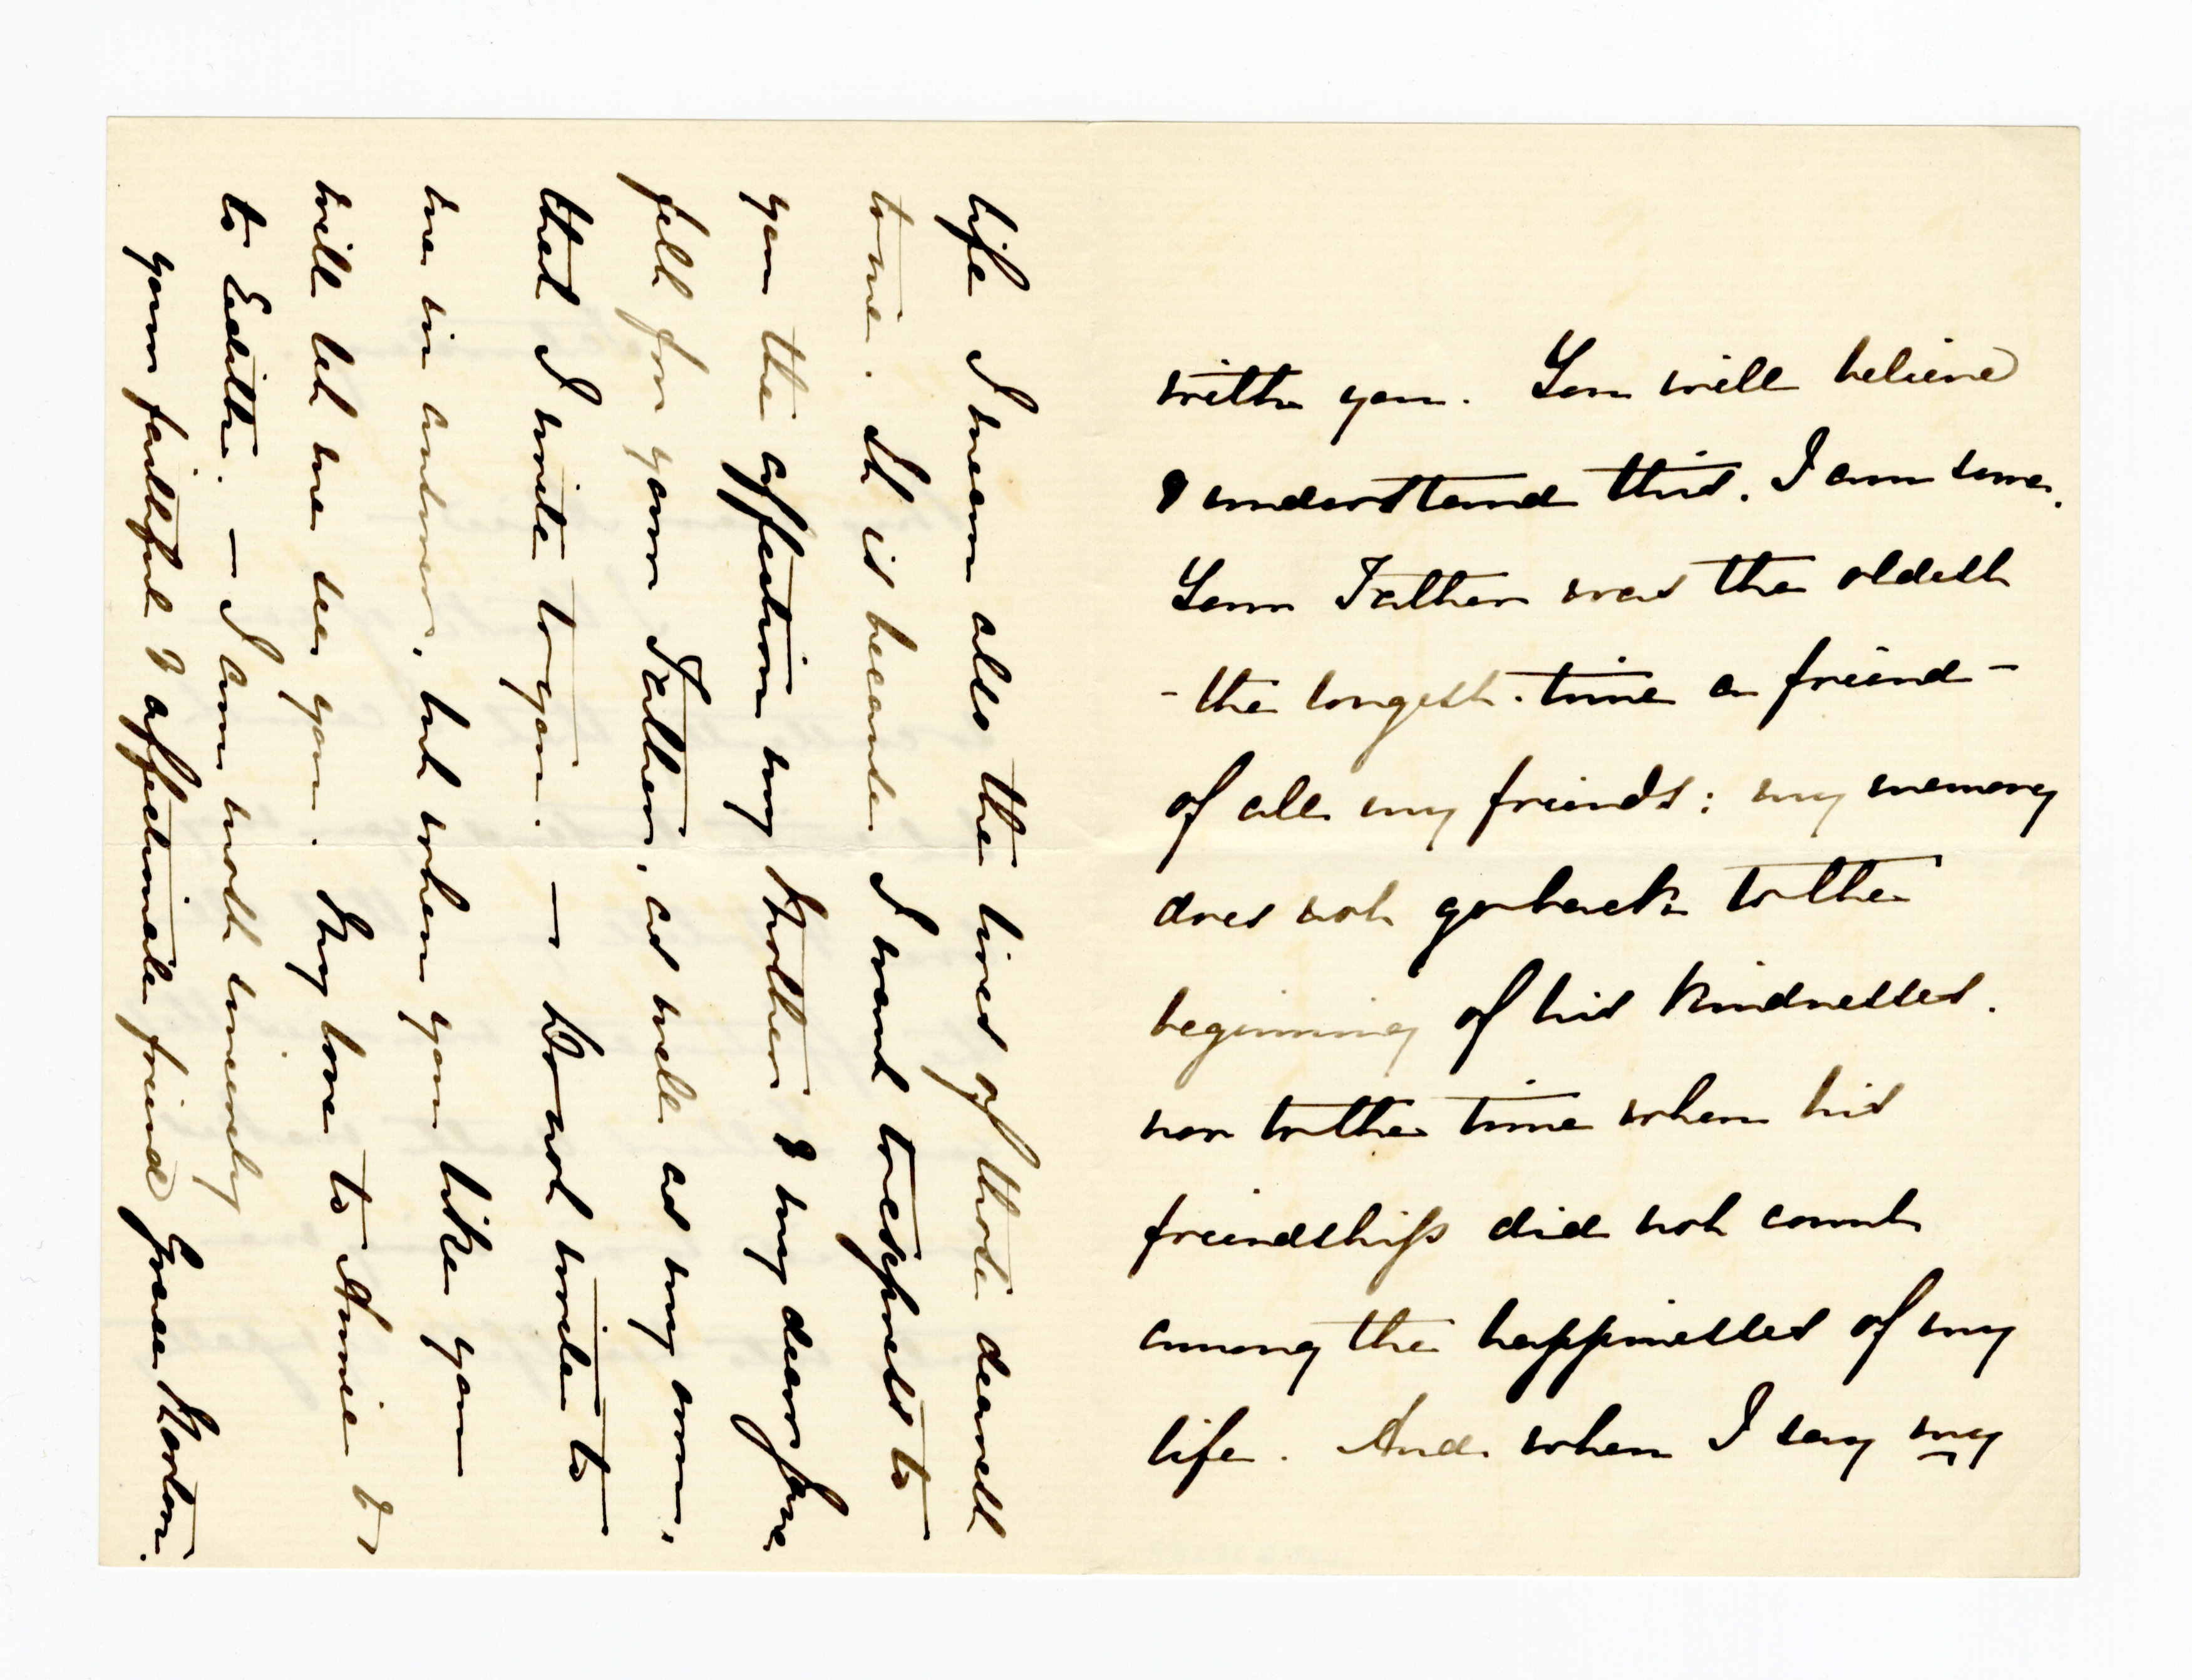 with you. You will believe
& understand this. I am sure.
Your Father was the oldest
- the longest time a friend -
of all my friends: my memory
does not go back to the
beginning of his kindnesses.
nor to the time when his
friendship did not count
among the happinesses of my
life. And when I say my
life I mean also the lives of those dearest
to me. It is because I want to express to
you the affection my Mother & my dear Jane
felt for your Father, as well as my own,
that I write to you. — Do not write to
me in answer, but when you like you
will let me see you. My love to Annie &
to Edith. — I am most sincerely
your faithful & affectionate friend Grace Norton.